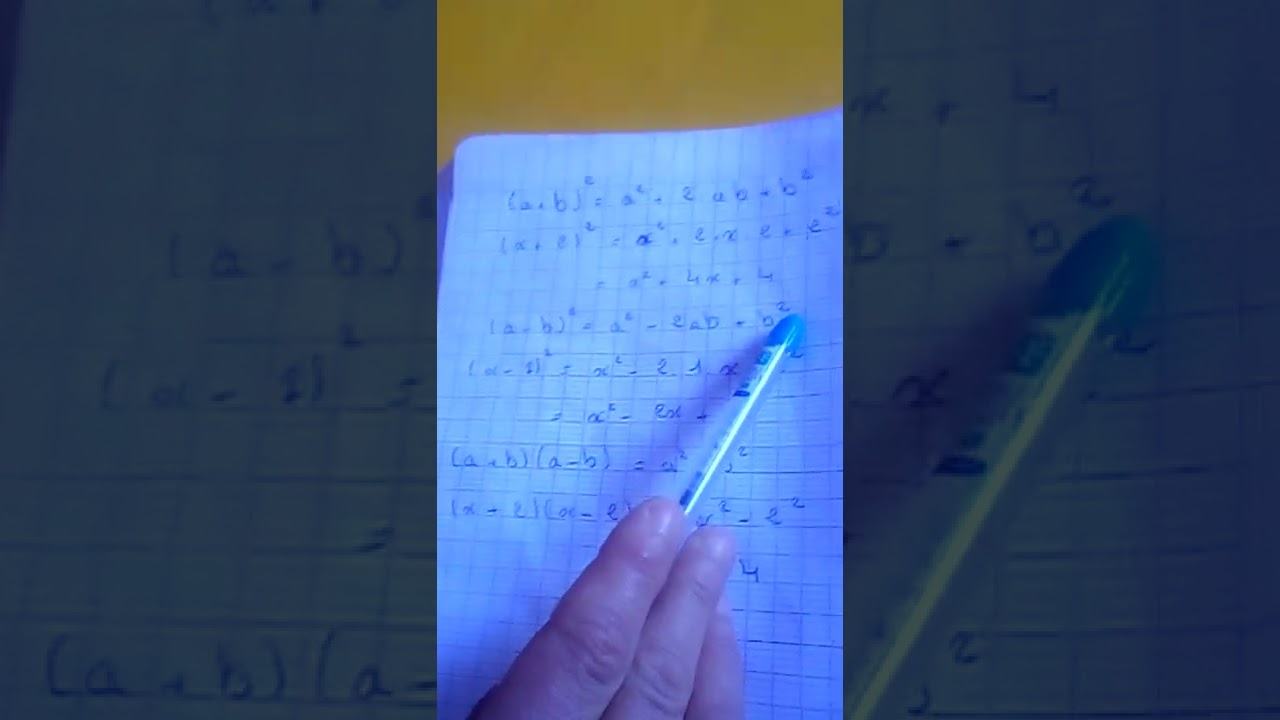 (a+b)² = a² + 2ab + b²
(x+2)² = x² + 2.x.2 + 2²
= x² + 4x + 4
(a-b)² = a² - 2ab + b²
(x-1)² = x² - 2.1.x
= x² - 2x +
(a+b)(a-b) = a²
(x-2)(x-2) x² - 2²
4